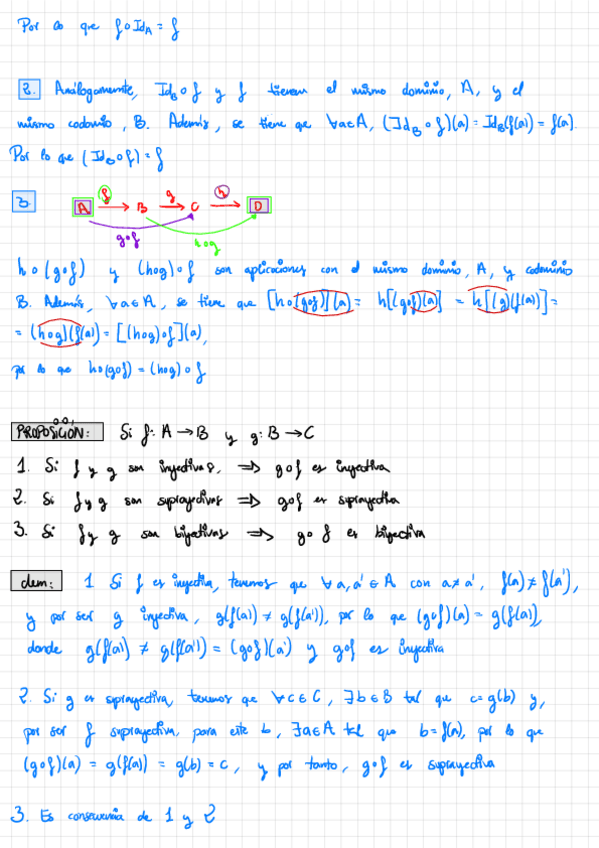 Por lo que f∘Id_A = f
2. Análogamente, Id_B∘f y f tienen el mismo dominio, A, y el
mismo codominio, B. Además, se tiene que ∀a∈A, (Id_B∘f)(a) = Id_B(f(a)) = f(a).
Por lo que (Id_B∘f) = f
3. A f→ B g→ C h→ D
g∘f h∘g
h∘(g∘f) y (h∘g)∘f son aplicaciones con el mismo dominio, A, y codominio
B. Además, ∀a∈A, se tiene que [h∘(g∘f)](a) = h[(g∘f)(a)] = h[(g)(f(a))] =
= (h∘g)(f(a)) = [(h∘g)∘f](a),
por lo que h∘(g∘f) = (h∘g)∘f
PROPOSICIÓN: Si f: A→B y g: B→C
1. Si f y g son inyectivas, ⟹ g∘f es inyectiva
2. Si f y g son suprayectivas ⟹ g∘f es suprayectiva
3. Si f y g son biyectivas ⟹ g∘f es biyectiva
dem: 1 Si f es inyectiva, tenemos que ∀a,a'∈A con a≠a', f(a)≠f(a'),
y por ser g inyectiva, g(f(a)) ≠ g(f(a')), por lo que (g∘f)(a) = g(f(a)),
donde g(f(a)) ≠ g(f(a')) = (g∘f)(a') y g∘f es inyectiva
2. Si g es suprayectiva, tenemos que ∀c∈C, ∃b∈B tal que c=g(b) y,
por ser f suprayectiva, para este b, ∃a∈A tal que b=f(a), por lo que
(g∘f)(a) = g(f(a)) = g(b) = c, y por tanto, g∘f es suprayectiva
3. Es consecuencia de 1 y 2